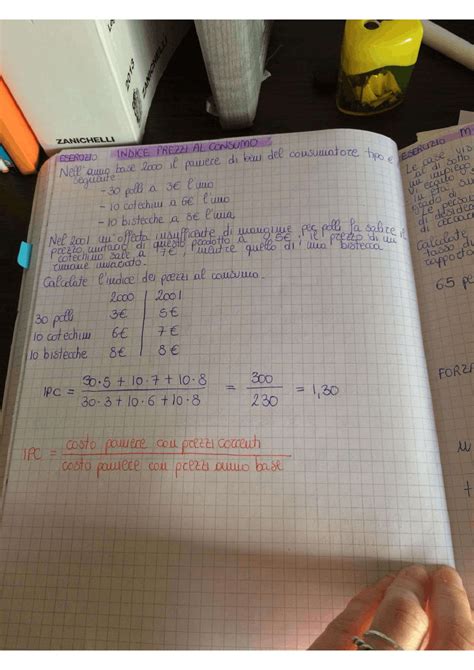 ZANICHELLI
2013
ZANICHELLI
ESERCIZIO INDICE PREZZI AL CONSUMO
Nell'anno base 2000 il paniere di beni del consumatore tipo è
seguente
- 30 polli a 3€ l'uno
- 10 cotechini a 6€ l'uno
- 10 bistecche a 8€ l'una
Nel 2001 un'offerta insufficiente di mangime per polli fa salire il
prezzo unitario di questi prodotto a 5€, il prezzo di un
cotechino sale a 7€, mentre quello di una bistecca
rimane invariato.
Calcolate l'indice dei prezzi al consumo.
2000 2001
30 polli 3€ 5€
10 cotechini 6€ 7€
10 bistecche 8€ 8€
IPC = 30·5 + 10·7 + 10·8 / 30·3 + 10·6 + 10·8 = 300 / 230 = 1,30
IPC = costo paniere con prezzi correnti / costo paniere con prezzi anno base
ESERCIZIO
Le case
al di sotto
un impiego
Vi
in età
grado di
Le
di
di
Calcolate
tasso
rapporto
65 pe
FORZA